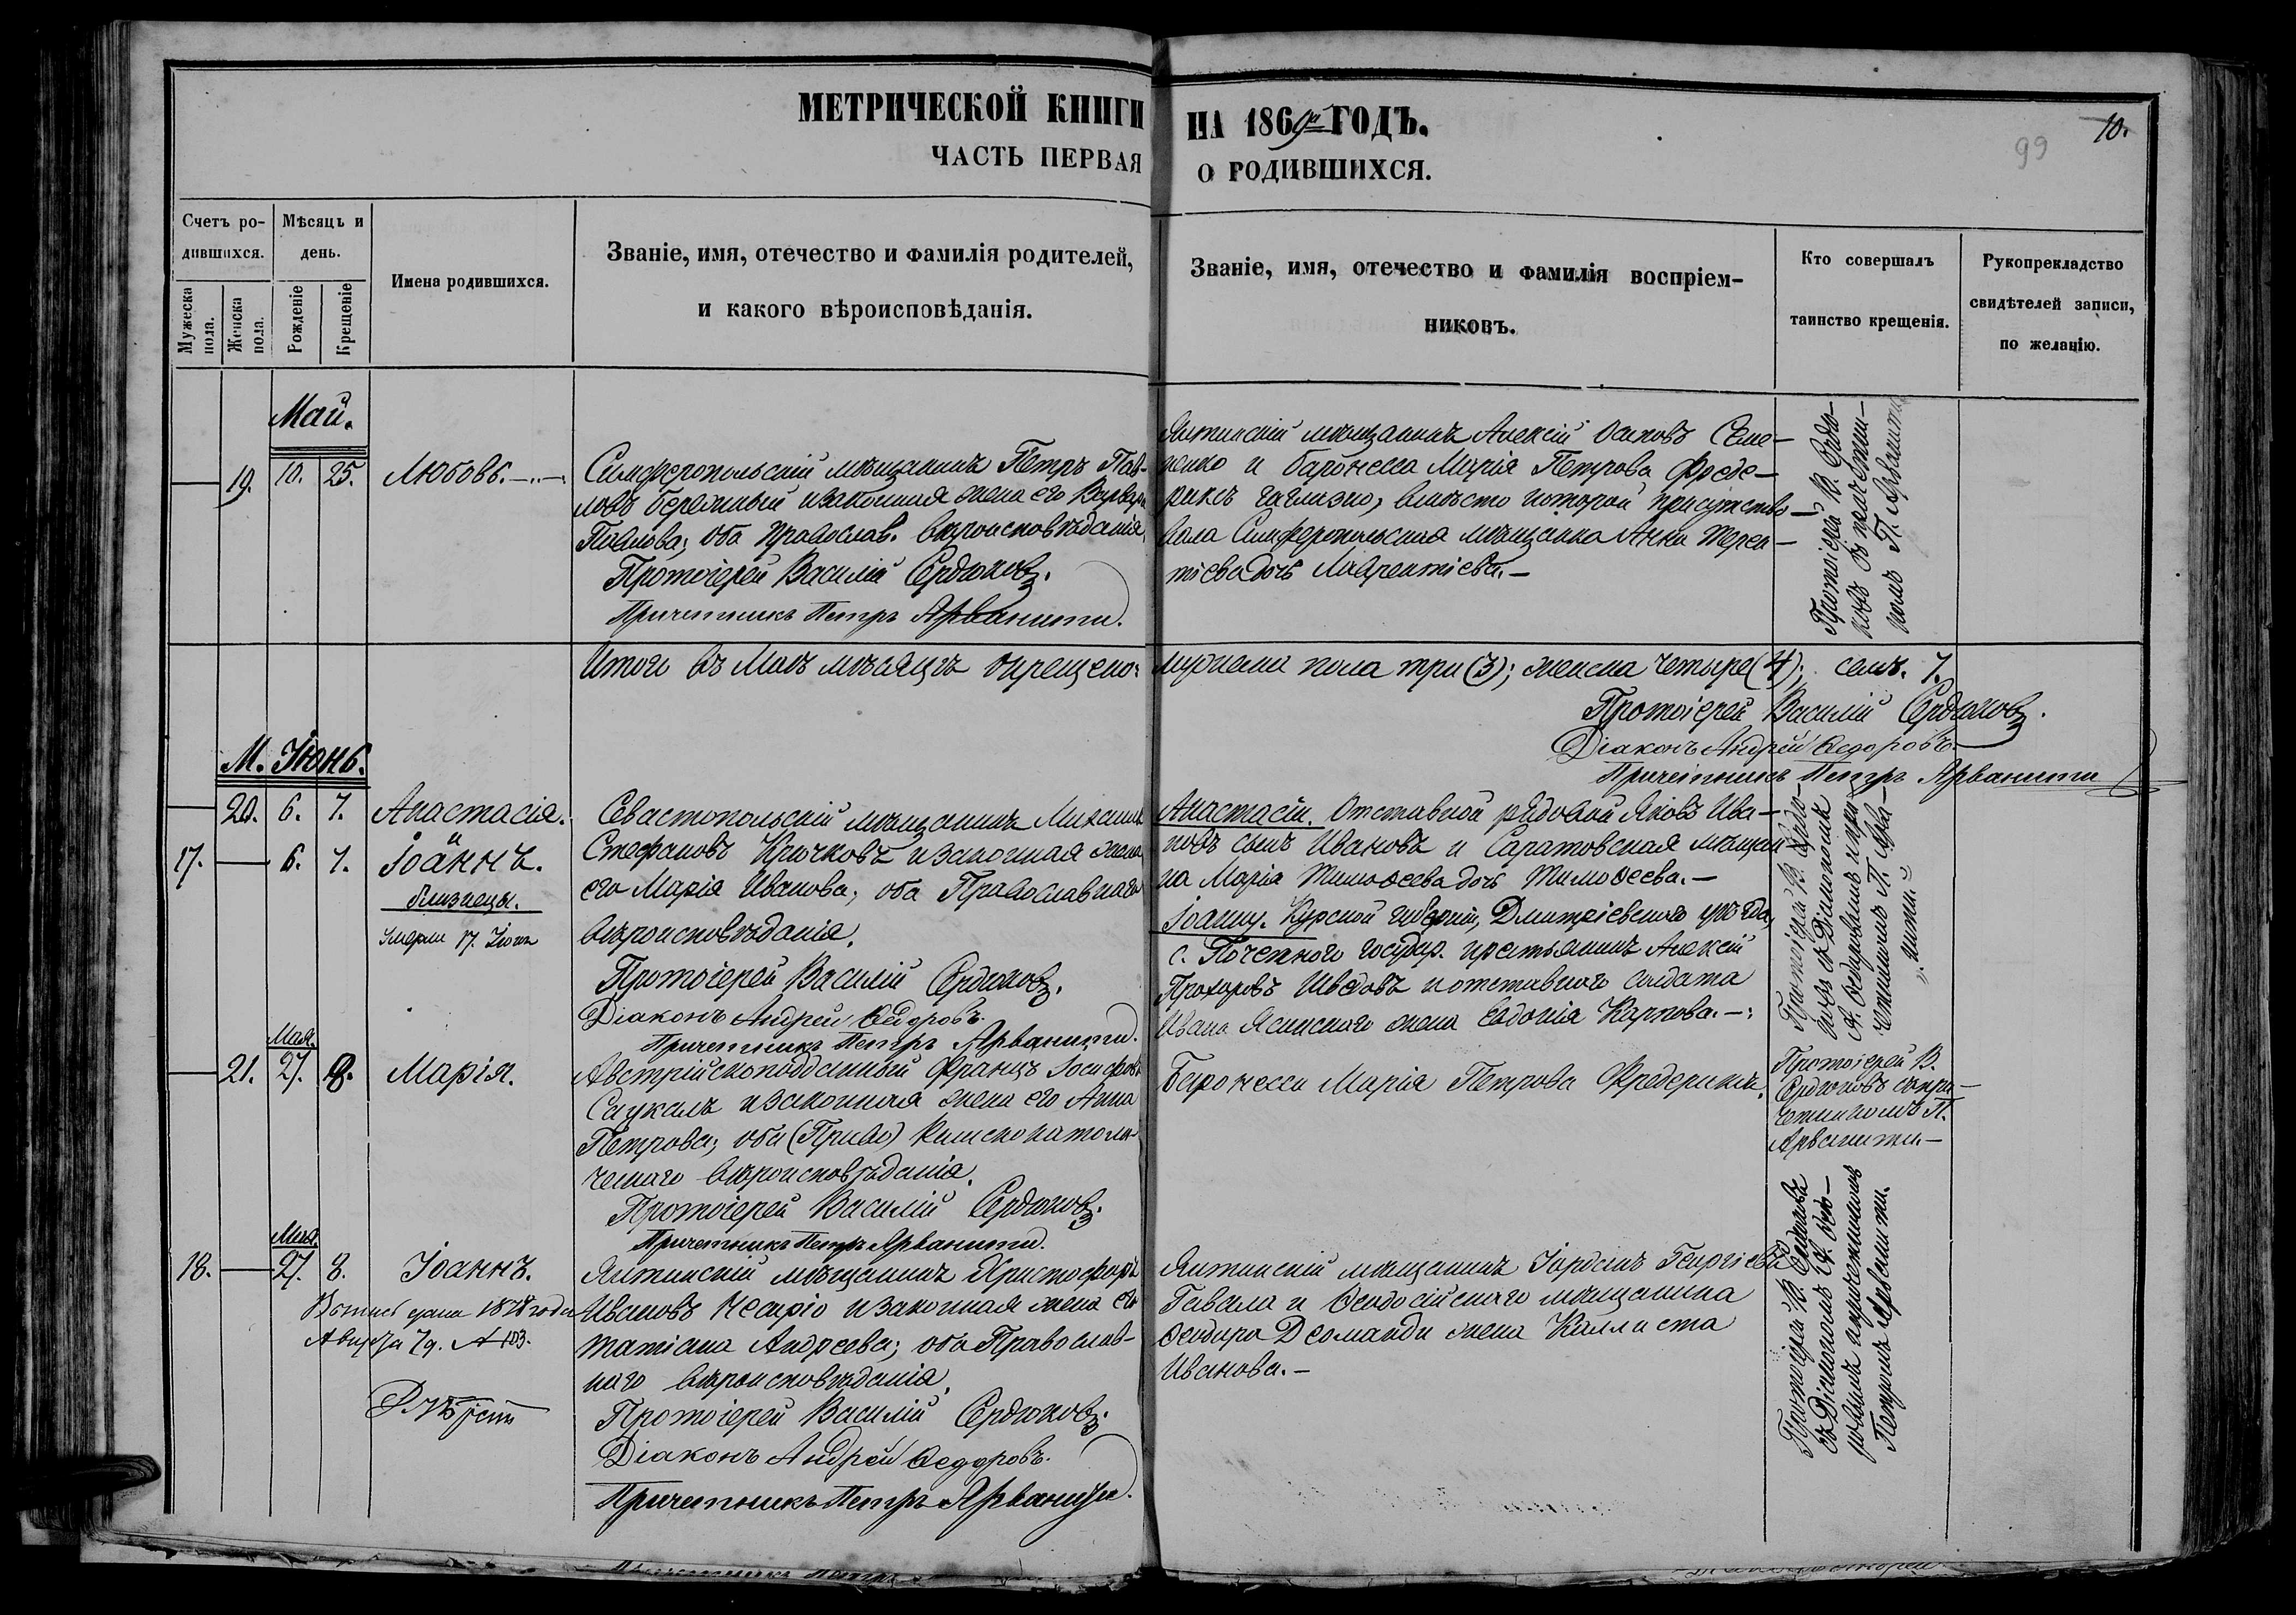 МЕТРИЧЕСКОЙ КНИГИ НА 1869й ГОДЪ.
ЧАСТЬ ПЕРВАЯ О РОДИВШИХСЯ.
99
10.
Счетъ ро-
дившихся.
Мужеска
пола.
Женска
пола.
Мѣсяцъ и
день.
Рожденіе
Крещеніе
Имена родившихся.
Званіе, имя, отечество и фамилія родителей,
и какого вѣроисповѣданія.
Званіе, имя, отечество и фамилія воспріем-
никовъ.
Кто совершалъ
таинство крещенія.
Рукоприкладство
свидѣтелей записи,
по желанію.
Май.
19. 10. 25. Любовь.
Симферопольскій мѣщанинъ Петръ Пав-
ловъ Бережный и законная жена его Варвара
Павлова; оба Православ. вѣроисповѣданія.
Протоіерей Василій Сердюковъ.
Причетникъ Петръ Арванити.
Ялтинскій мѣщанинъ Алексій Осиповъ Семе-
ненко и баронесса Марія Петрова Фреде-
риксъ вмѣсто которой присутство-
вала Симферопольская мѣщанка Анна Терен-
тіева дочь Лаврентіева.—
Протоіерей В. Сердю-
ковъ съ причетни-
комъ П. Арванити
Итого въ Маѣ мѣсяцѣ окрещено: мужеска пола три (3); женска четыре (4); семь. 7.
Протоіерей Василій Сердюковъ.
Діаконъ Андрей Ѳедоровъ.
Причетникъ Петръ Арванити
М. Іюнь.
20. 6. 7. Анастасія.
и
17. 6. 7. Іоаннъ.
Близнецы.
Умерли 17. Іюня
Севастопольскій мѣщанинъ Михаилъ
Стефановъ Крючковъ и законная жена
его Марія Иванова; оба Православнаго
вѣроисповѣданія.
Протоіерей Василій Сердюковъ.
Діаконъ Андрей Ѳедоровъ.
Причетникъ Петръ Арванити.
Анастасіи. Отставной рядовой Яковъ Ива-
новъ сынъ Ивановъ и Саратовская мѣщан-
ка Марія Тимоѳеева дочь Тимоѳеева.—
Іоанну. Курской губерніи, Дмитріевскаго уѣзда,
с. Почепного государ. крестьянинъ Алексій
Прохоровъ Шведовъ и отставнаго солдата
Ивана Ясинскаго жена Евдокія Карпова.—
Протоіерей В. Сердю-
ковъ съ Діакономъ
А. Ѳедоровымъ и при-
четникомъ П. Арва-
нити
Мая.
21. 27. 8. Марія.
Австрійскоподданный Францъ Іосифовъ
Саукалъ и законная жена его Анна
Петрова; оба (Право) Римскокатоли-
ческаго вѣроисповѣданія.
Протоіерей Василій Сердюковъ.
Причетникъ Петръ Арванити.
Баронесса Марія Петрова Фредериксъ.
Протоіерей В.
Сердюковъ съ при-
четникомъ П.
Арванити—
Мая.
18. 27. 8. Іоаннъ.
Выпись дана 1878 года
Августа 79. № 103.
Ялтинскій мѣщанинъ Христофоръ
Ивановъ Чесаріо и законная жена его
Татіана Андреева; оба Православ-
наго вѣроисповѣданія.
Протоіерей Василій Сердюковъ.
Діаконъ Андрей Ѳедоровъ.
Причетникъ Петръ Арванити.
Ялтинскій мѣщанинъ Іорданъ Георгіевъ
Гавала и Ѳеодосійскаго мѣщанина
Ѳеодора Деоманди жена Каллиста
Иванова.—
Протоіерей В. Сердюковъ
съ Діакономъ А. Ѳедо-
ровымъ и причетникомъ
Петромъ Арванити.